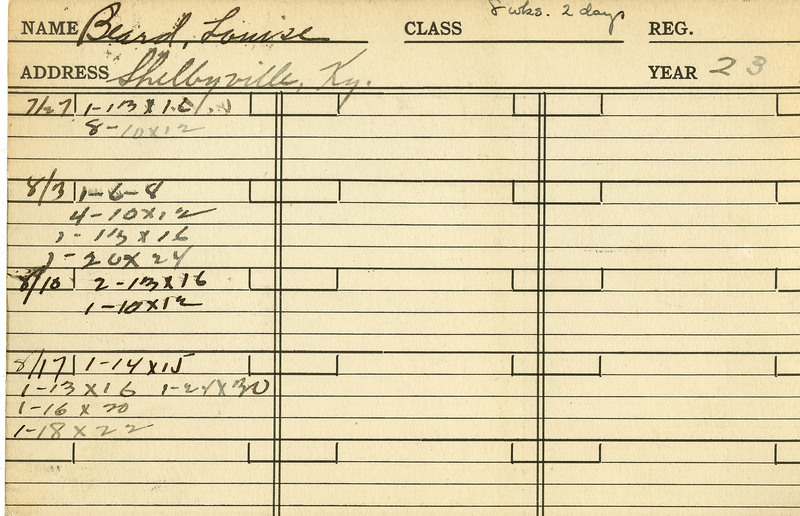 8 wks. 2 days
NAME Beard, Louise CLASS REG.
ADDRESS Shelbyville, Ky. YEAR 23
7/27 1-13 x 16
8-10x12
8/3 1-6-8
4-10x12
1-13 x 16
1-20x24
8/10 2-13x16
1-10x12
8/17 1-14x15
1-13x16 1-24x30
1-16 x 20
1-18x22